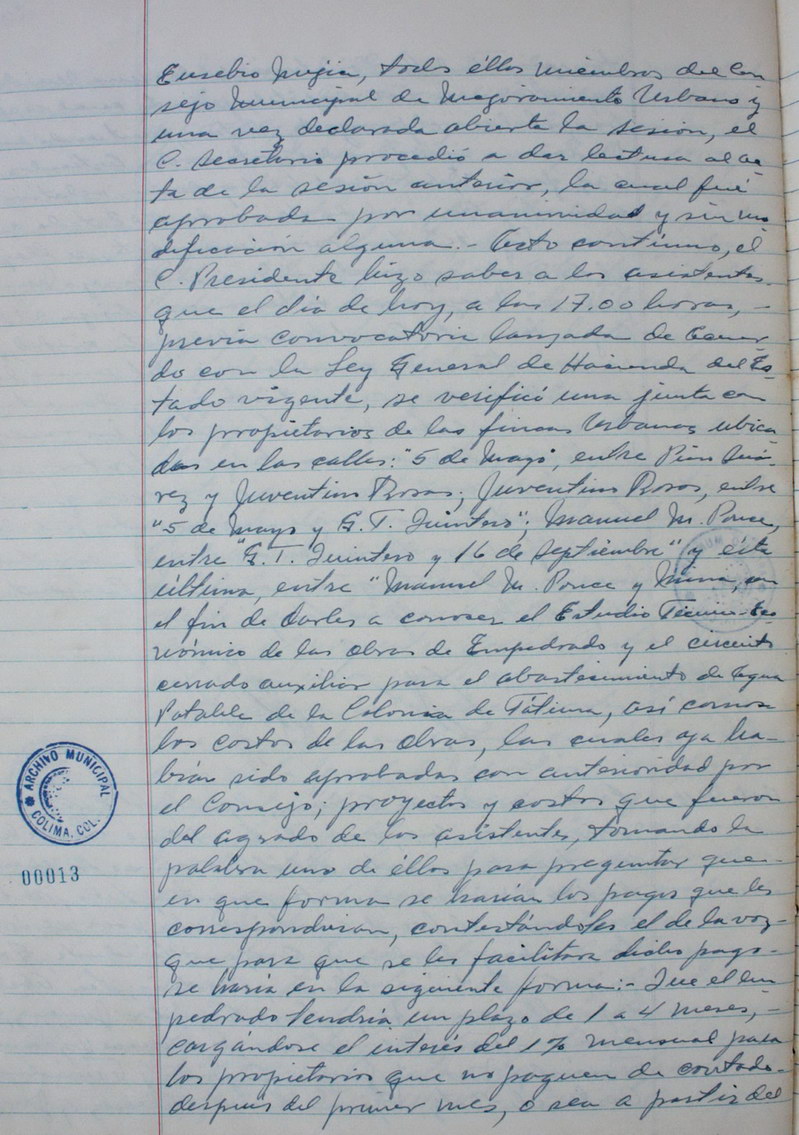 Eusebio Mejia, todos éllos miembros del Con
sejo Municipal de Mejoramiento Urbano y
una vez declarada abierta la sesión, el
C. Secretario procedió a dar lectura al ac
ta de la sesión anterior, la cual fué
aprobada por unanimidad y sin mo
dificación alguna.- Acto contínuo, el
C. Presidente hizo saber a los asistentes-
que el día de hoy, a las 17.00 horas, -
previa convocatoria lanzada de acuer
do con la Ley General de Hacienda del Es-
tado vigente, se verificó una junta con
los propietarios de las fincas Urbanas ubica
das en las calles: "5 de Mayo, entre Pino Suá-
rez y Juventino Rosas; Juventino Rosas, entre
"5 de Mayo y G. T. Quintero"; Manuel M. Ponce,
entre "G. T. Quintero y 16 de Septiembre" y ésta
última, entre "Manuel M. Ponce y con
el fin de darles a conocer el Estudio Técnico-Eco
nómico de las obras de Empedrado y el circuito
cerrado auxiliar para el abastecimiento de Agua
Potable de la Colonia de Fátima, así como
los costos de las obras, las cuales ya ha-
bían sido aprobadas con anterioridad por
el Consejo; proyectos y costos que fueron
del agrado de los asistentes, tomando la
palabra uno de éllos para preguntar que-
en que forma se harían los pagos que les
correspondieran, contestándoles el de la voz-
que para que se les facilitara dicho pago-
se haría en la siguiente forma:- Que el em
pedrado tendría un plazo de 1 a 4 meses, -
cargándose el interés del 1% mensual para
los propietarios que no paguen de contado-
después del primer mes, o sea a partir del
ARCHIVO MUNICIPAL
COLIMA, COL.
00013